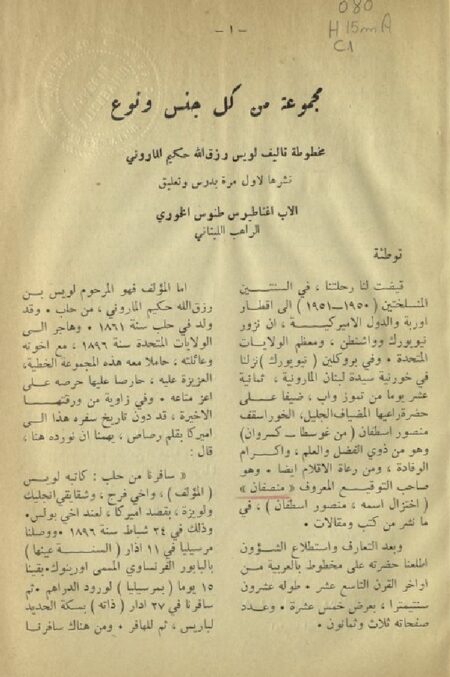 - ١ -
080
H15mA
C1
مجموعة من كل جنس ونوع
مخطوطة تاليف لويس رزق الله حكيم الماروني
نشرها لاول مرة بدرس وتعليق
الاب اغناطيوس طنوس الخوري
الراهب اللبناني
توطئة
قيضت لنا رحلتنا ، في السنتين
المنسلختين ( ١٩٥٠-١٩٥١ ) الى اقطار
اوربة والدول الاميركية ، ان نزور
نيويورك وواشنطن ، ومعظم الولايات
المتحدة . وفي بروكلين ( نيويورك ) نزلنا
في خورنية سيدة لبنان المارونية ، ثمانية
عشر يوما من تموز واب ، ضيفا على
حضرة راعيها المضياف الجليل، الخوراسقف
منصور اسطفان ( من غوسطا - كسروان )
وهو من ذوي الفضل والعلم ، واكرام
الوفادة ، ومن رعاة الاقلام ايضا . وهو
صاحب التوقيع المعروف « منصفان »
( اختزال اسمه ، منصور اسطفان ) ، في
ما نشر من كتب ومقالات .
وبعد التعارف واستطلاع الشؤون
اطلعنا حضرته على مخطوط بالعربية من
اواخر القرن التاسع عشر . طوله عشرون
سنتيمترا ، بعرض خمس عشرة . وعدد
صفحاته ثلاث وثمانون .
اما المؤلف فهو المرحوم لويس بن
رزق الله حكيم الماروني ، من حلب . وقد
ولد في حلب سنة ١٨٦١ . وهاجر الى
الولايات المتحدة سنة ١٨٩٦ ، مع اخوته
وعائلته ، حاملا معه هذه المجموعة الخطية،
العزيزة عليه ، حارصا عليها حرصه على
اعز متاعه . وفي زاوية من ورقتها
الاخيرة ، قد دون تاريخ سفره هذا الى
اميركا بقلم رصاص ، يهمنا ان نورده هنا ،
قال :
« سافرنا من حلب : كاتبه لويس
( المؤلف ) ، واخي فرج ، وشقائقي انجليك
ولويزة ، بقصد اميركا ، لعند اخي بولس.
وذلك في ٢٤ شباط سنة ١٨٩٦ . ووصلنا
مرسيليا في ١١ آذار ( السنة عينها )
بالبابور الفرنساوي المسمى اورينوك. بقينا
١٥ يوما ( بمرسيليا ) لورود الدراهم . ثم
سافرنا في ٢٧ ادار ( ذاته ) بسكة الحديد
لباريس ، ثم للهافر . ومن هناك سافرنا